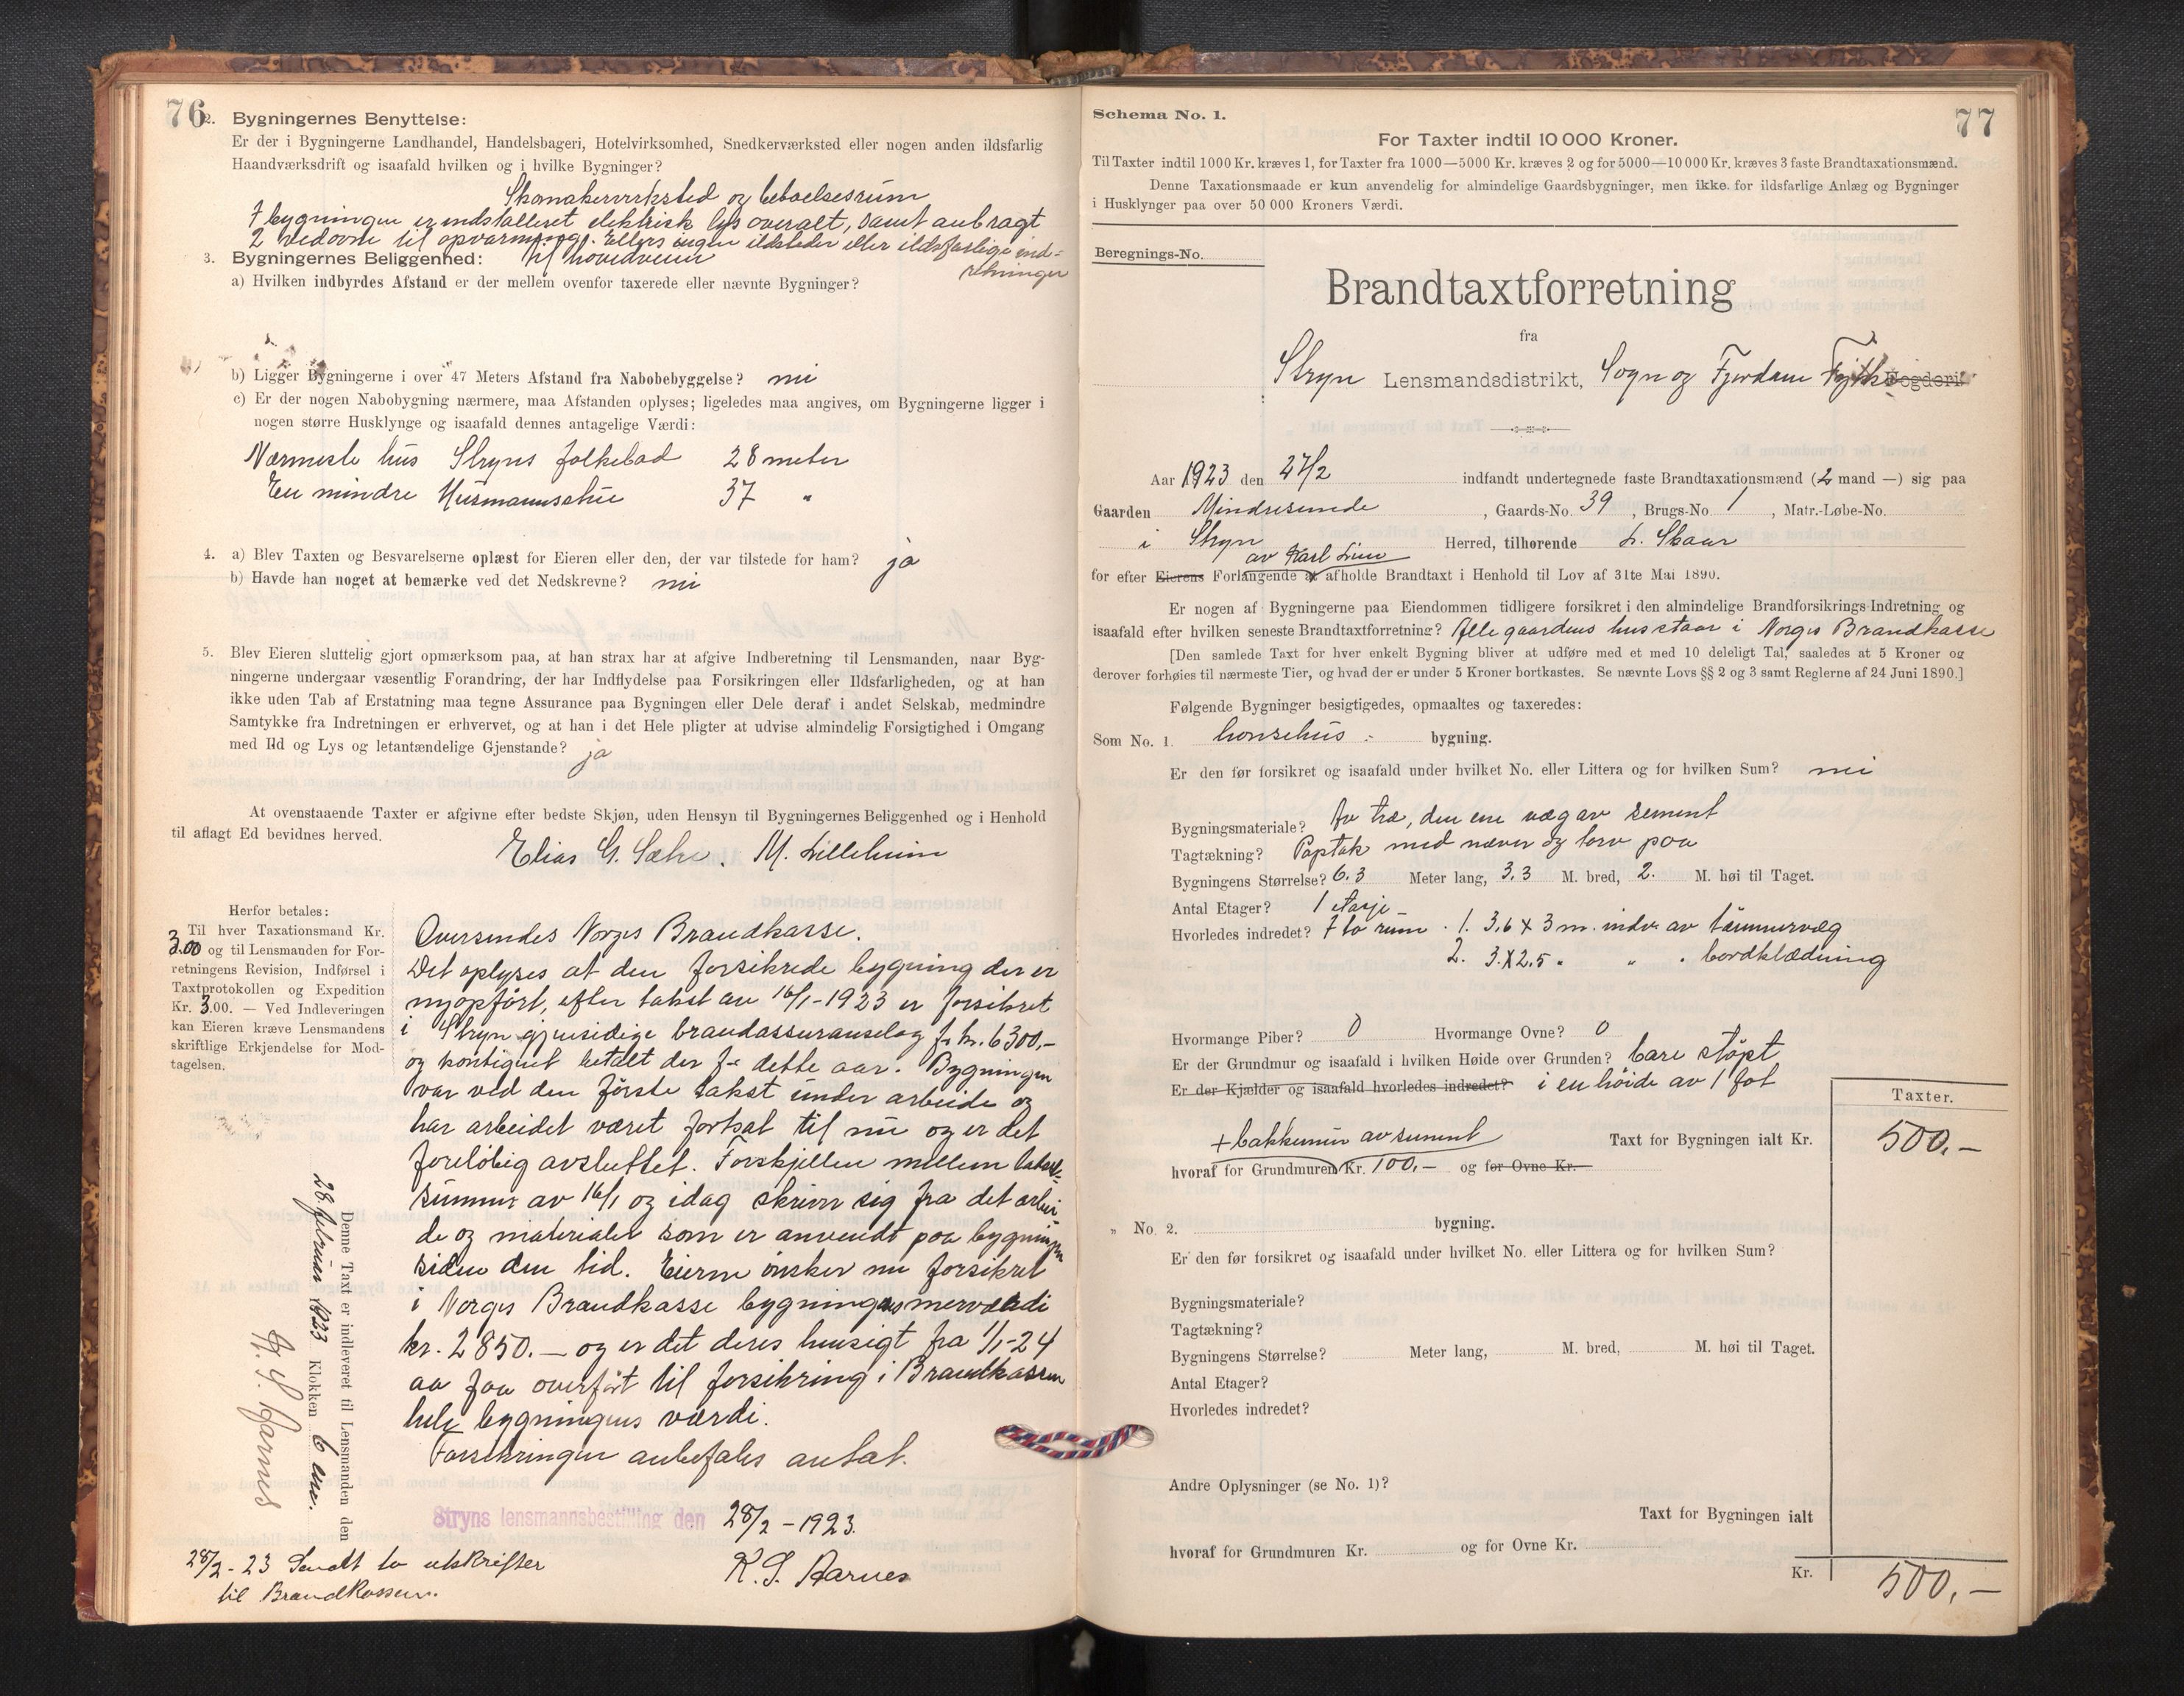 76
2. Bygningernes Benyttelse:
Er der i Bygningerne Landhandel, Handelsbageri, Hotelvirksomhed, Snedkerværksted eller nogen anden ildsfarlig
Haandværksdrift og isaafald hvilken og i hvilke Bygninger?
Skomakerverksted og beboelsesrum
I bygningen er indstalleret elektrisk lys overalt, samt anbragt
2 vedovne til opvarming. Ellers ingen ildsteder eller ildsfarlige ind-
retninger
3. Bygningernes Beliggenhed: til hovedveien
a) Hvilken indbyrdes Afstand er der mellem ovenfor taxerede eller nævnte Bygninger?
b) Ligger Bygningerne i over 47 Meters Afstand fra Nabobebyggelse? nei
c) Er der nogen Nabobygning nærmere, maa Afstanden oplyses; ligeledes maa angives, om Bygningerne ligger i
nogen større Husklynge og isaafald dennes antagelige Værdi:
Nærmeste hus Stryns folkebad 28 meter
En mindre Husmannsstue 37 "
4. a) Blev Taxten og Besvarelserne oplæst for Eieren eller den, der var tilstede for ham? ja
b) Havde han noget at bemærke ved det Nedskrevne? nei
5. Blev Eieren sluttelig gjort opmærksom paa, at han strax har at afgive Indberetning til Lensmanden, naar Byg-
ningerne undergaar væsentlig Forandring, der har Indflydelse paa Forsikringen eller Ildsfarligheden, og at han
ikke uden Tab af Erstatning maa tegne Assurance paa Bygningen eller Dele deraf i andet Selskab, medmindre
Samtykke fra Indretningen er erhvervet, og at han i det Hele pligter at udvise almindelig Forsigtighed i Omgang
med Ild og Lys og letantændelige Gjenstande? ja
At ovenstaaende Taxter er afgivne efter bedste Skjøn, uden Hensyn til Bygningernes Beliggenhed og i Henhold
til aflagt Ed bevidnes herved.
Elias G. Sætre. M. Lilleheim
Herfor betales:
Til hver Taxationsmand Kr.
3.00 og til Lensmanden for For-
retningens Revision, Indførsel i
Taxtprotokollen og Expedition
Kr. 3.00. — Ved Indleveringen
kan Eieren kræve Lensmandens
skriftlige Erkjendelse for Mod-
tagelsen.
Oversendes Norges Brandkasse.
Det oplyses at den forsikrede bygning der er
nyopført, efter takst av 16/1-1923 er forsikret
i Stryn gjensidige brandassuranselag f. kr. 6300,-
og kontigent betalt der for dette aar. Bygningen
var ved den første takst under arbeide og
har arbeidet været fortsat til nu og er det
foreløbig avsluttet. Forskjellen mellem takst-
summen av 16/1 og idag skriver sig fra det arbei-
de og materialer som er anvendt paa bygningen
siden den tid. Eierne ønsker nu forsikret
i Norges Brandkasse bygningens merværdi
kr. 2850.- og er det deres hensigt fra 1/1-24
aa faa overført til forsikring i Brandkassen
hele bygningens værdi.
Forsikringen anbefales antat.
Stryns lensmannsbestilling den 28/2-1923.
K. S. Aarnes
Denne Taxt er indleveret til Lensmanden den
28. februar 1923 Klokken 6 em.
28/2-23 Sendt to utskrifter
til Brandkassen.
77
Schema No. 1.
For Taxter indtil 10 000 Kroner.
Til Taxter indtil 1000 Kr. kræves 1, for Taxter fra 1000—5000 Kr. kræves 2 og for 5000—10 000 Kr. kræves 3 faste Brandtaxationsmænd.
Denne Taxationsmaade er kun anvendelig for almindelige Gaardsbygninger, men ikke for ildsfarlige Anlæg og Bygninger
i Husklynger paa over 50 000 Kroners Værdi.
Beregnings-No.
Brandtaxtforretning
fra
Stryn Lensmandsdistrikt, Sogn og Fjordane Fylke Fogderi
Aar 1923 den 27/2 indfandt undertegnede faste Brandtaxationsmænd (2 mand —) sig paa
Gaarden Mindresunde, Gaards-No. 39, Brugs-No. 1, Matr.-Løbe-No.
i Stryn Herred, tilhørende L. Skaar
av Karl Lien
for efter Eierens Forlangende at afholde Brandtaxt i Henhold til Lov af 31te Mai 1890.
Er nogen af Bygningerne paa Eiendommen tidligere forsikret i den almindelige Brandforsikrings-Indretning og
isaafald efter hvilken seneste Brandtaxtforretning? Alle gaardens hus staar i Norges Brandkasse
[Den samlede Taxt for hver enkelt Bygning bliver at udføre med et med 10 deleligt Tal, saaledes at 5 Kroner og
derover forhøies til nærmeste Tier, og hvad der er under 5 Kroner bortkastes. Se nævnte Lovs §§ 2 og 3 samt Reglerne af 24 Juni 1890.]
Følgende Bygninger besigtigedes, opmaaltes og taxeredes:
Som No. 1. hønsehus - bygning.
Er den før forsikret og isaafald under hvilket No. eller Littera og for hvilken Sum? nei
Bygningsmateriale? Av træ, den ene væg av sement
Tagtækning? Paptak med næver og torv paa
Bygningens Størrelse? 6.3 Meter lang, 3,3 M. bred, 2. M. høi til Taget.
Antal Etager? 1 etasje
Hvorledes indredet? I to rum. 1. 3,6 x 3 m. indv. av tømmervæg
2. 3. X 2,5 " " " bordklædning
Hvormange Piber? 0 Hvormange Ovne? 0
Er der Grundmur og isaafald i hvilken Høide over Grunden? bare støpt
Er der Kjælder og isaafald hvorledes indredet? i en høide av 1 fot
Taxter.
+ bakkemur av sement
Taxt for Bygningen ialt Kr. 500,-
hvoraf for Grundmuren Kr. 100,- og for Ovne Kr.
" No. 2. bygning.
Er den før forsikret og isaafald under hvilket No. eller Littera og for hvilken Sum?
Bygningsmateriale?
Tagtækning?
Bygningens Størrelse? Meter lang, M. bred, M. høi til Taget.
Antal Etager?
Hvorledes indredet?
Andre Oplysninger (se No. 1)?
Taxt for Bygningen ialt
hvoraf for Grundmuren Kr. og for Ovne Kr.
Kr. 500,-